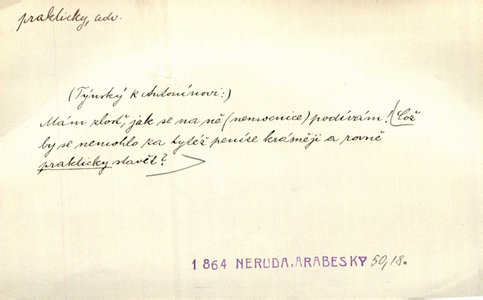 prakticky, adv.
(Týnský k Antonínovi:)
Mám zlost, jak se na ně (nemocnice) podívám! Což
by se nemohlo za tytéž peníze krásněji a rovně
prakticky stavět?
1864 NERUDA, ARABESKY 50,18.